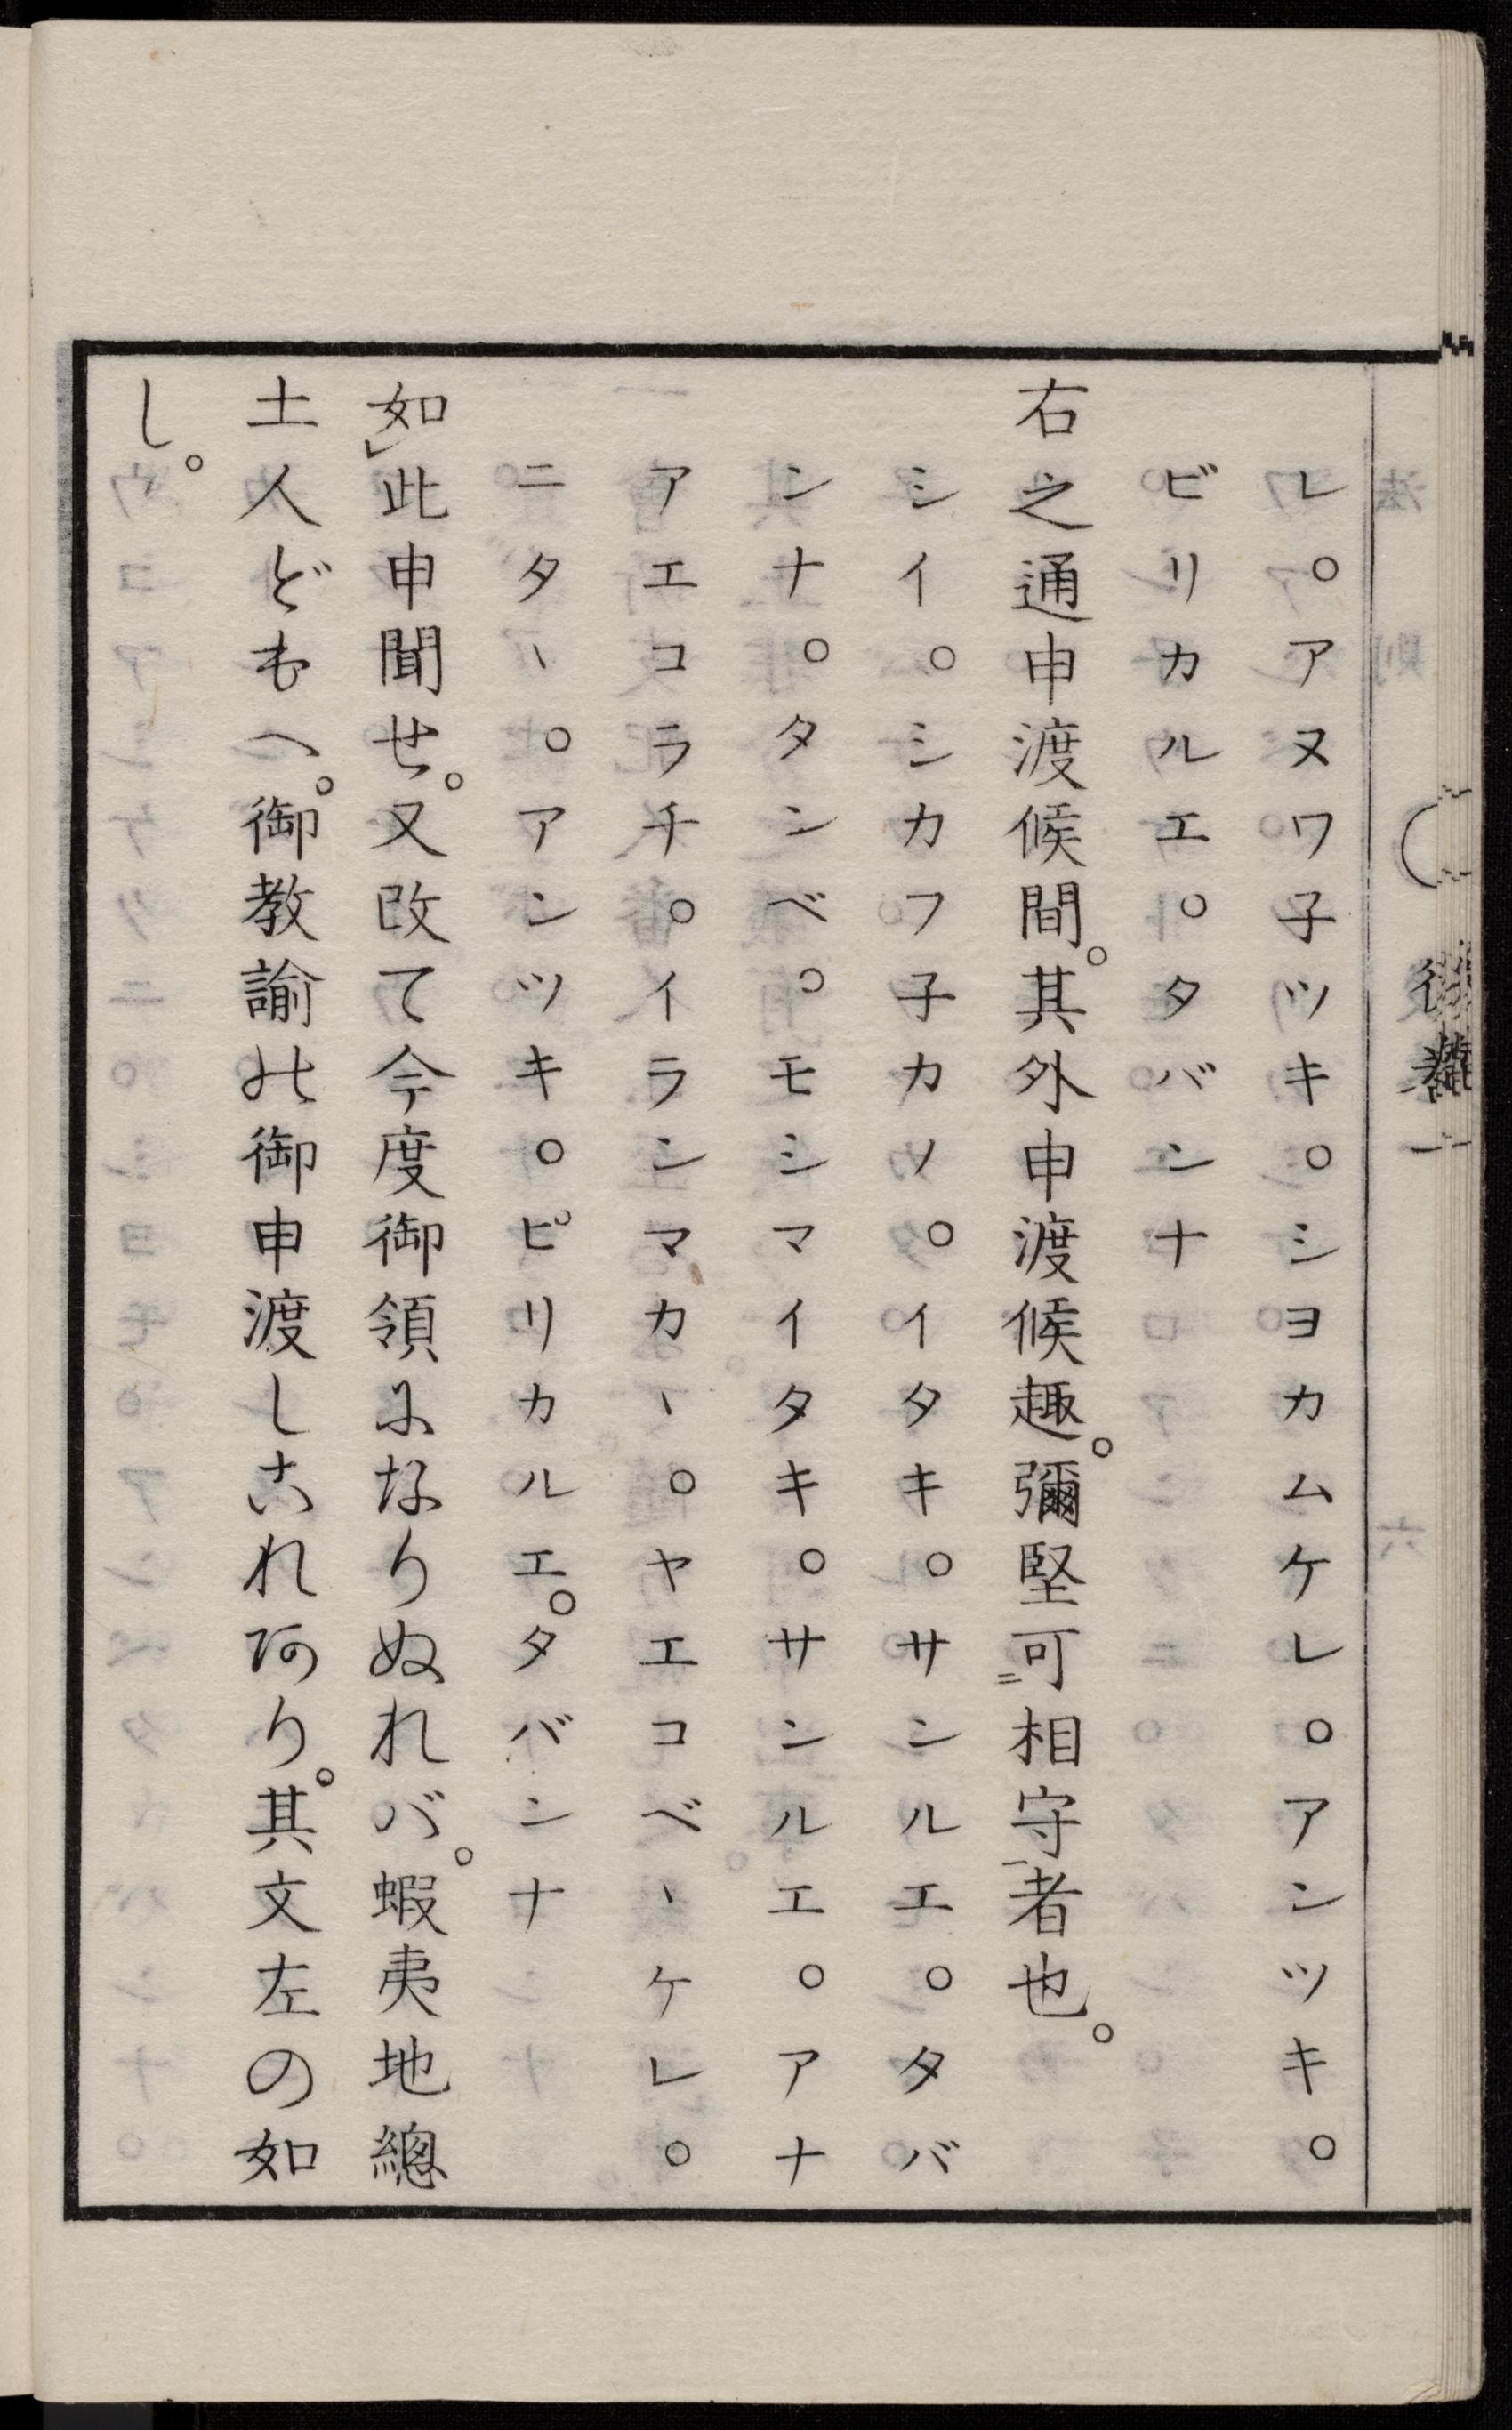 レ。アヌワ子ツキ。シヨカムケレ。アンツキ。
ビリカルエ。タバンナ
右之通申渡候間。其外申渡候趣。彌堅可㆓相守㆒者也。
シイ。シカフ子カソ。イタキ。サンルエ。タバ
ンナ。タンベ。モシマイタキ。サンルエ。アナ
アエコラチ。イランマカヽ。ヤエコベヽケレ。
ニタヽ。アンツキ。ピリカルエ。タバンナ
如㆑此申聞せ。又改て今度御領になりぬれバ。蝦夷地總
土人どもへ。御教諭の御申渡しこれあり。其文左の如
し。